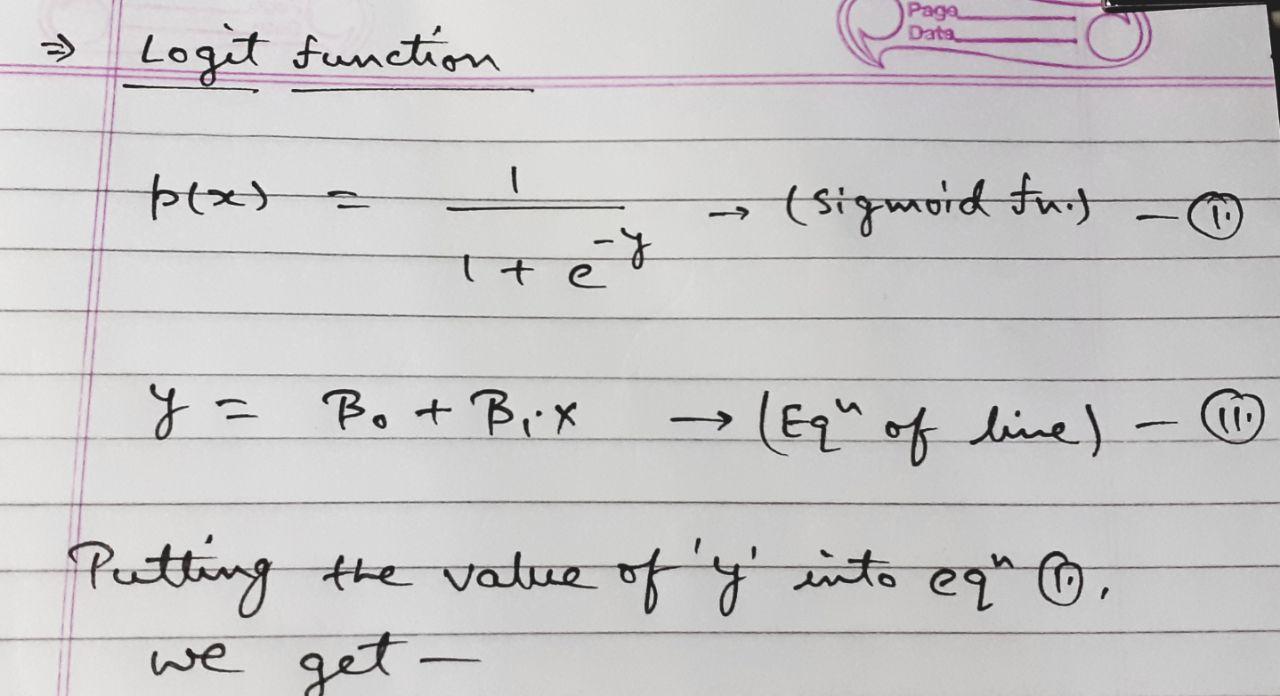 Page
Data
⇒ Logit function
p(x) = 1 / (1 + e^-y) → (sigmoid fn.) — (I.)
y = B₀ + B₁·x → (Eqⁿ of line) — (II.)
Putting the value of 'y' into eqⁿ (I.),
we get —